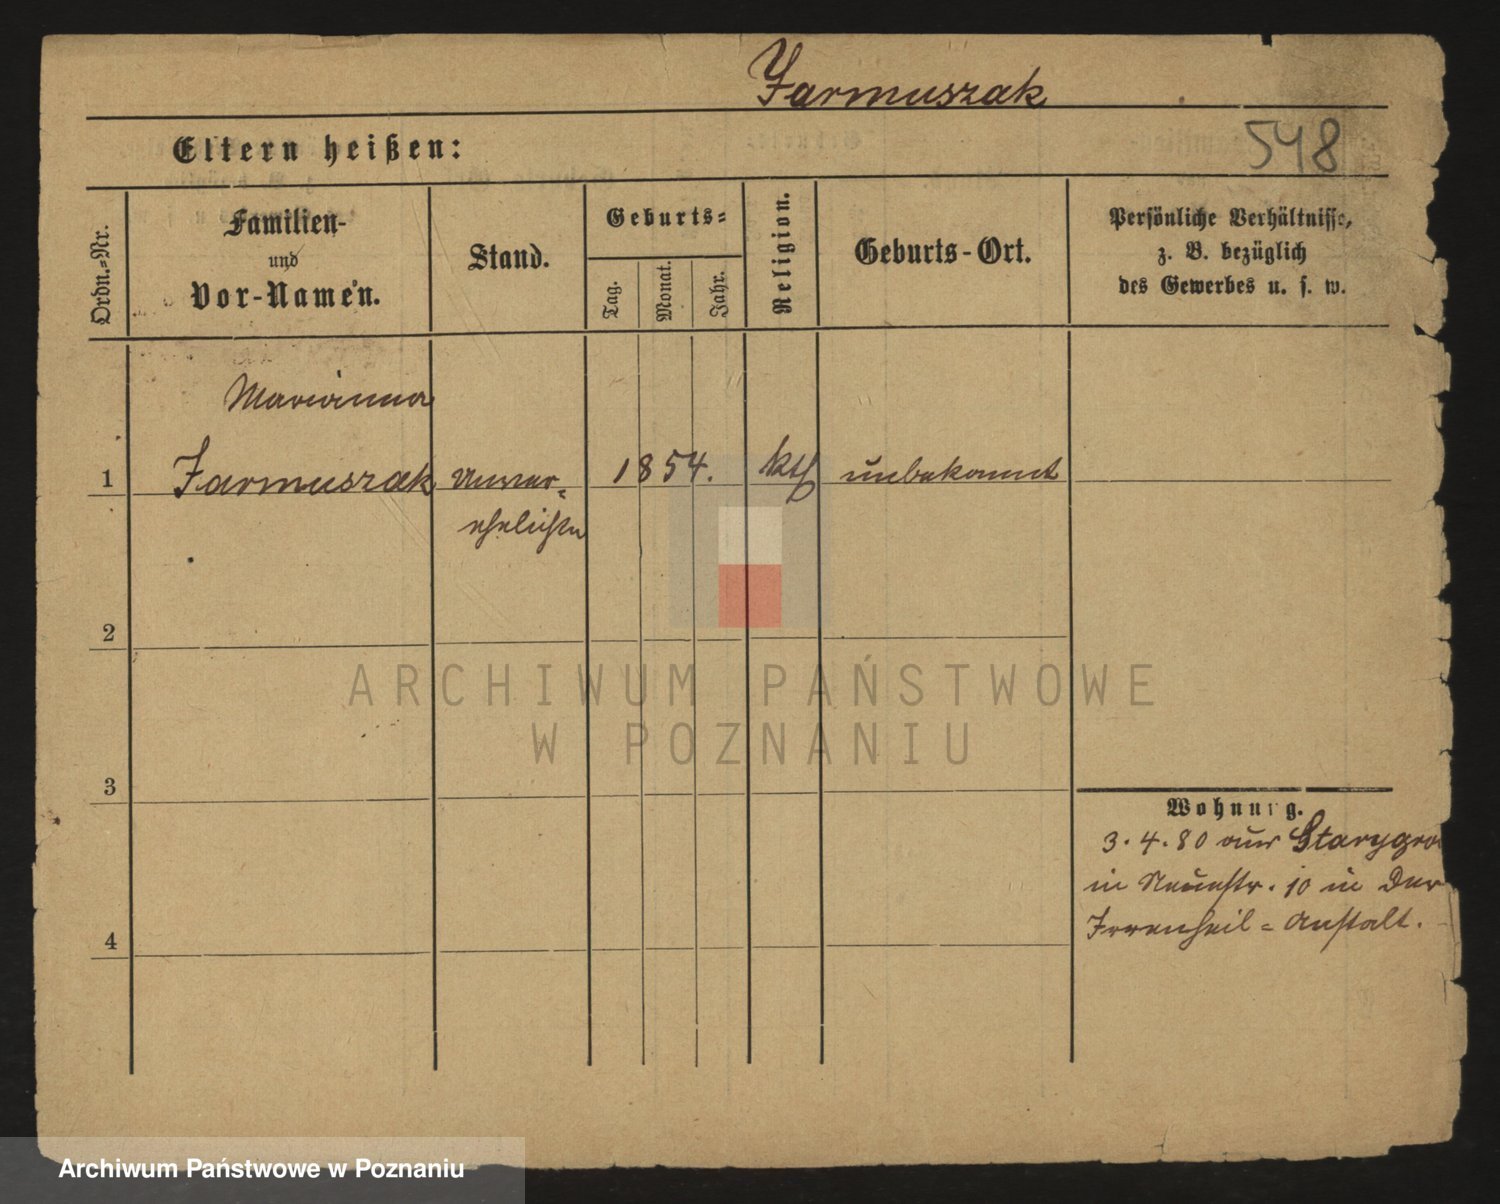 Jarmuszak
548
Eltern heißen:
Ordn.=Nr.
Familien-
und
Vor-Namen.
Stand.
Geburts=
Tag.
Monat.
Jahr.
Religion.
Geburts-Ort.
Persönliche Verhältnisse,
z. B. bezüglich
des Gewerbes u. s. w.
Marianna
1 Jarmuszak Unver= 1854. kth unbekannt
ehelichte
2
3
4
Wohnung.
3.4.80 aus Starygro
in Neuestr. 10 in Der
Irrenheil=Anstalt.
ARCHIWUM PAŃSTWOWE
W POZNANIU
Archiwum Państwowe w Poznaniu